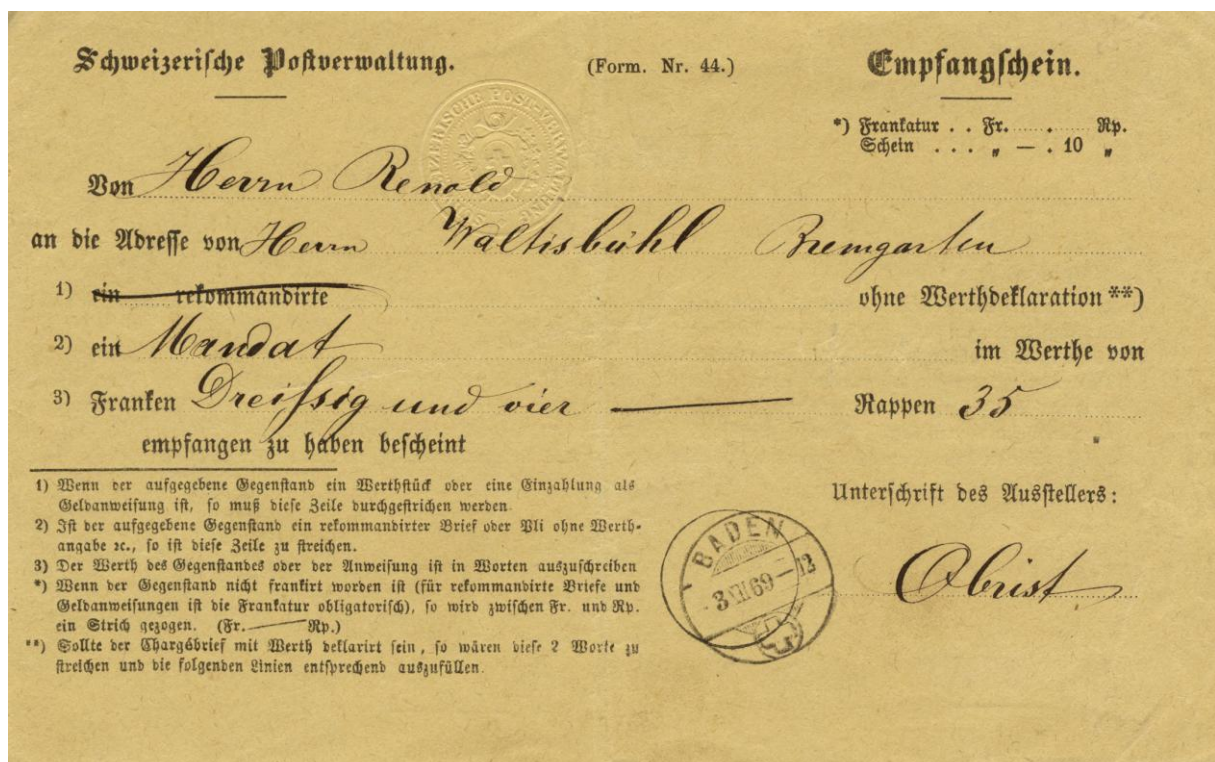 Schweizerische Postverwaltung. (Form. Nr. 44.) Empfangschein.
SCHWEIZERISCHE POST-VERWALTUNG
*) Frankatur . . Fr. . Rp.
Schein . . . „ — . 10 „
Von Herrn Renold
an die Adresse von Herrn Waltisbühl Bremgarten
1) ein rekommandirte ohne Werthdeklaration **)
2) ein Mandat im Werthe von
3) Franken Dreissig und vier — Rappen 35
empfangen zu haben bescheint
1) Wenn der aufgegebene Gegenstand ein Werthstück oder eine Einzahlung als
Geldanweisung ist, so muß diese Zeile durchgestrichen werden.
2) Ist der aufgegebene Gegenstand ein rekommandirter Brief oder Pli ohne Werth-
angabe ꝛc., so ist diese Zeile zu streichen.
3) Der Werth des Gegenstandes oder der Anweisung ist in Worten auszuschreiben
*) Wenn der Gegenstand nicht frankirt worden ist (für rekommandirte Briefe und
Geldanweisungen ist die Frankatur obligatorisch), so wird zwischen Fr. und Rp.
ein Strich gezogen. (Fr. — Rp.)
**) Sollte der Chargébrief mit Werth deklarirt sein, so wären diese 2 Worte zu
streichen und die folgenden Linien entsprechend auszufüllen.
Unterschrift des Ausstellers:
Obrist
BADEN
3 69 - 12